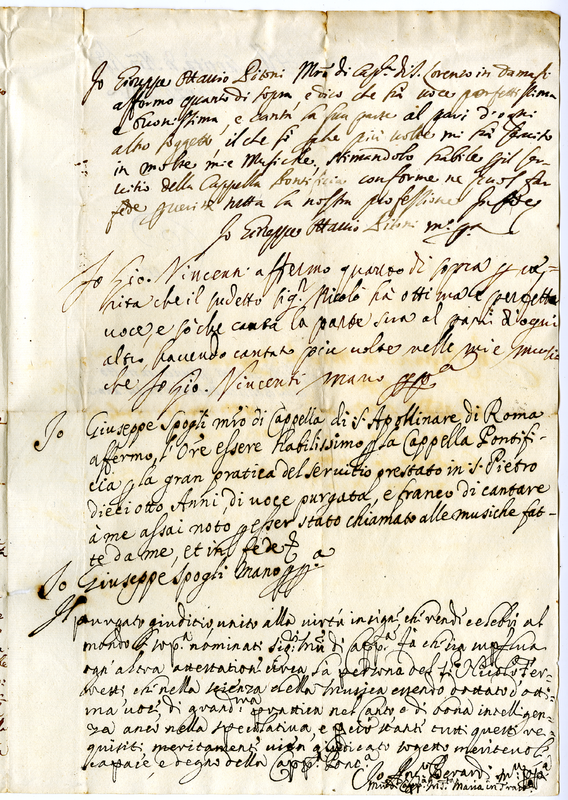 Io Gioseppe Ottavio Pitoni Mro di Capª di S. Lorenzo in Damaso
affermo quanto di sopra, e dico che ha voce perfettissima
e buonissima, e canta la sua parte al pari d'ogni
altro soggetto, il che sò che più volte mi ha servito
in molte mie Musiche, stimandolo habile p il ser-
vitio della Cappella Pontificia conforme ne puol far
fede tutta la nostra professione In fede
Io Gioseppe Ottavio Pitoni mº pª
Io Gio. Vincenti affermo quanto di sopra p ve-
rita che il sudetto sigr Nicolò ha ottima le perfetta
voce, e sò che canta la parte sua al pari di ogni
altro havendo cantato piu volte nelle mie musi-
che Io Gio. Vincenti mano ppª
Io Giuseppe Spogli mro di Cappella di S. Apollinare di Roma
affermo, l'Ore essere habilissimo p la Cappella Pontifi-
cia p la gran pratica del servitio prestato in S. Pietro
dieci otto Anni, di voce purgata, e franco di cantare
à me assai noto p esser stato chiamato alle musiche fat-
te da me, et in fede
Io Giuseppe Spogli Mano ppª
Il purgato giuditio unito alla virtù insigne ch rendi celebri al
mondo li sopª nominati Sigri Mri di Cappª fà ch'ra superflua
ogn' altra attestatione circa la persona del Sr Nicolò Fer-
retti ch nella scienza della musica essendo dottato d'otti-
ma voce, di grandma prattica nel canto e di bona intelligen-
za anco nella speculativa, e p ciò stanti tutti questi re-
quisiti meritamente vien giudicato sogetto meritevole
capace, e degno della Cappª Pontª
Io Angº Berardi mº ppª
Mro di Cappª di Sª Maria in Trastº